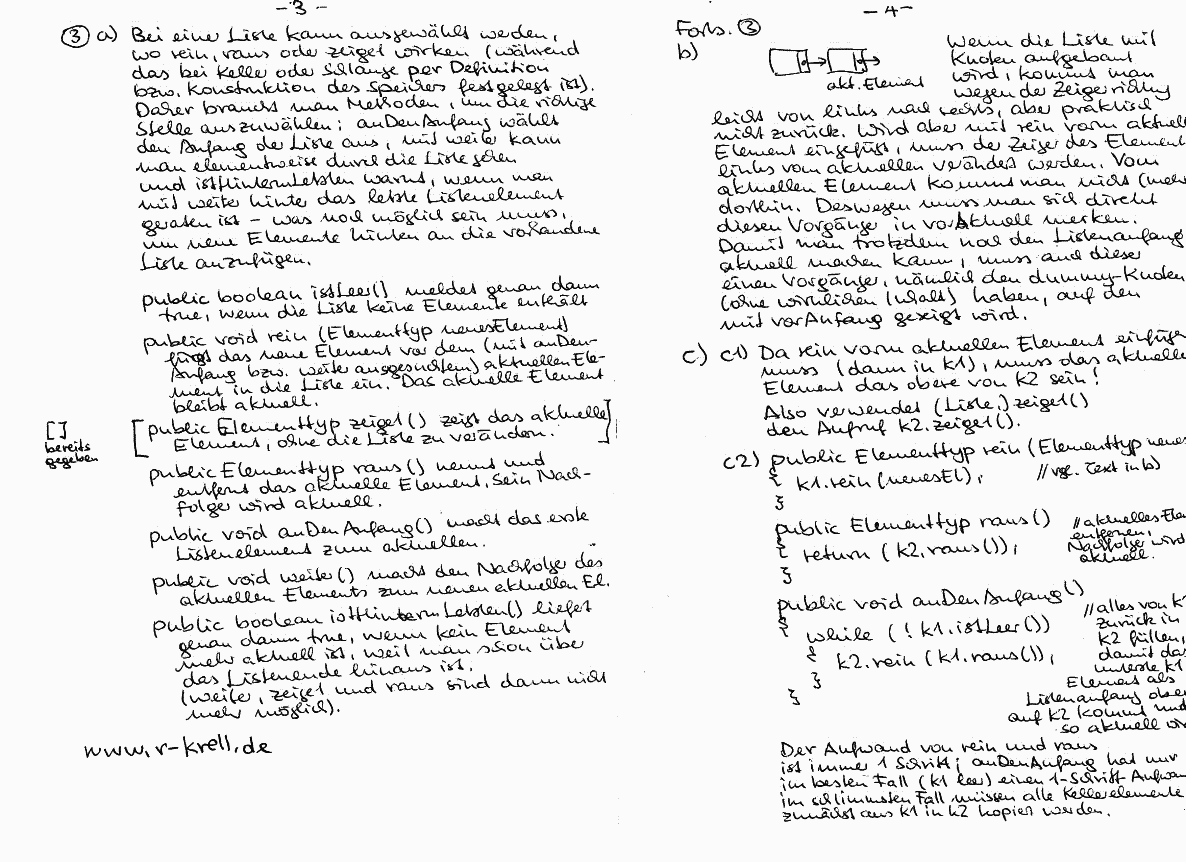 - 3 -
③ a) Bei einer Liste kann ausgewählt werden,
wo rein, raus oder zeigel wirken (während
das bei Keller oder Schlange per Definition
bzw. Konstruktion des Speichers festgelegt ist).
Daher braucht man Methoden, um die richtige
Stelle auszuwählen: anDenAnfang wählt
den Anfang der Liste aus, mit weiter kann
man elementweise durch die Liste gehen
und istHintermLetzten warnt, wenn man
mit weiter hinter das letzte Listenelement
geraten ist – was noch möglich sein muss,
um neue Elemente hinten an die vorhandene
Liste anzufügen.
public boolean istLeer() meldet genau dann
true, wenn die Liste keine Elemente enthält
public void rein (Elementtyp neuesElement)
fügt das neue Element vor dem (mit anDen-
Anfang bzw. weiter ausgesuchten) aktuellen Ele-
ment in die Liste ein. Das aktuelle Element
bleibt aktuell.
[] bereits gegeben
[public Elementtyp zeigel() zeigt das aktuelle
Element, ohne die Liste zu verändern.]
public Elementtyp raus() nennt und
entfernt das aktuelle Element. Sein Nach-
folger wird aktuell.
public void anDenAnfang() macht das erste
Listenelement zum aktuellen.
public void weiter() macht den Nachfolger des
aktuellen Elements zum neuen aktuellen El.
public boolean istHintermLetzten() liefert
genau dann true, wenn kein Element
mehr aktuell ist, weil man schon über
das Listenende hinaus ist.
(weiter, zeigel und raus sind dann nicht
mehr möglich).
www.r-krell.de
- 4 -
Forts. ③
b)
akt. Element
Wenn die Liste mit
Knoten aufgebaut
wird, kommt man
wegen der Zeigerrichtg
leicht von links nach rechts, aber praktisch
nicht zurück. Wird aber mit rein vorm aktuell
Element eingefügt, muss der Zeiger des Element
links vom aktuellen verändert werden. Vom
aktuellen Element kommt man nicht (mehr
dorthin. Deswegen muss man sich direkt
diesen Vorgänger in vorAktuell merken.
Damit man trotzdem noch den Listenanfang
aktuell machen kann, muss auch dieser
einen Vorgänger, nämlich den dummy-Knoten
(ohne wirklichen Inhalt) haben, auf den
mit vorAnfang gezeigt wird.
c) c1) Da rein vorm aktuellen Element einfüge
muss (dann in k1), muss das aktuelle
Element das obere von k2 sein!
Also verwendet (Liste.)zeigel()
den Aufruf k2.zeigel().
c2) public Elementtyp rein (Elementtyp neues
{ k1.rein (neuesEl); // vgl. Text in b)
}
public Elementtyp raus() // aktuelles Ele
entfernen,
{ return (k2.raus()); Nachfolger wird
aktuell.
}
public void anDenAnfang()
{ while (! k1.istLeer()) // alles von k1
zurück in
{ k2.rein (k1.raus()); k2 füllen,
damit das
} unterste k1
} Element als
Listenanfang oben
auf k2 kommt und
so aktuell wi
Der Aufwand von rein und raus
ist immer 1 Schritt; anDenAnfang hat nur
im besten Fall (k1 leer) einen 1-Schritt-Aufwa
im schlimmsten Fall müssen alle Kellerelemente
zunächst aus k1 in k2 kopiert werden.